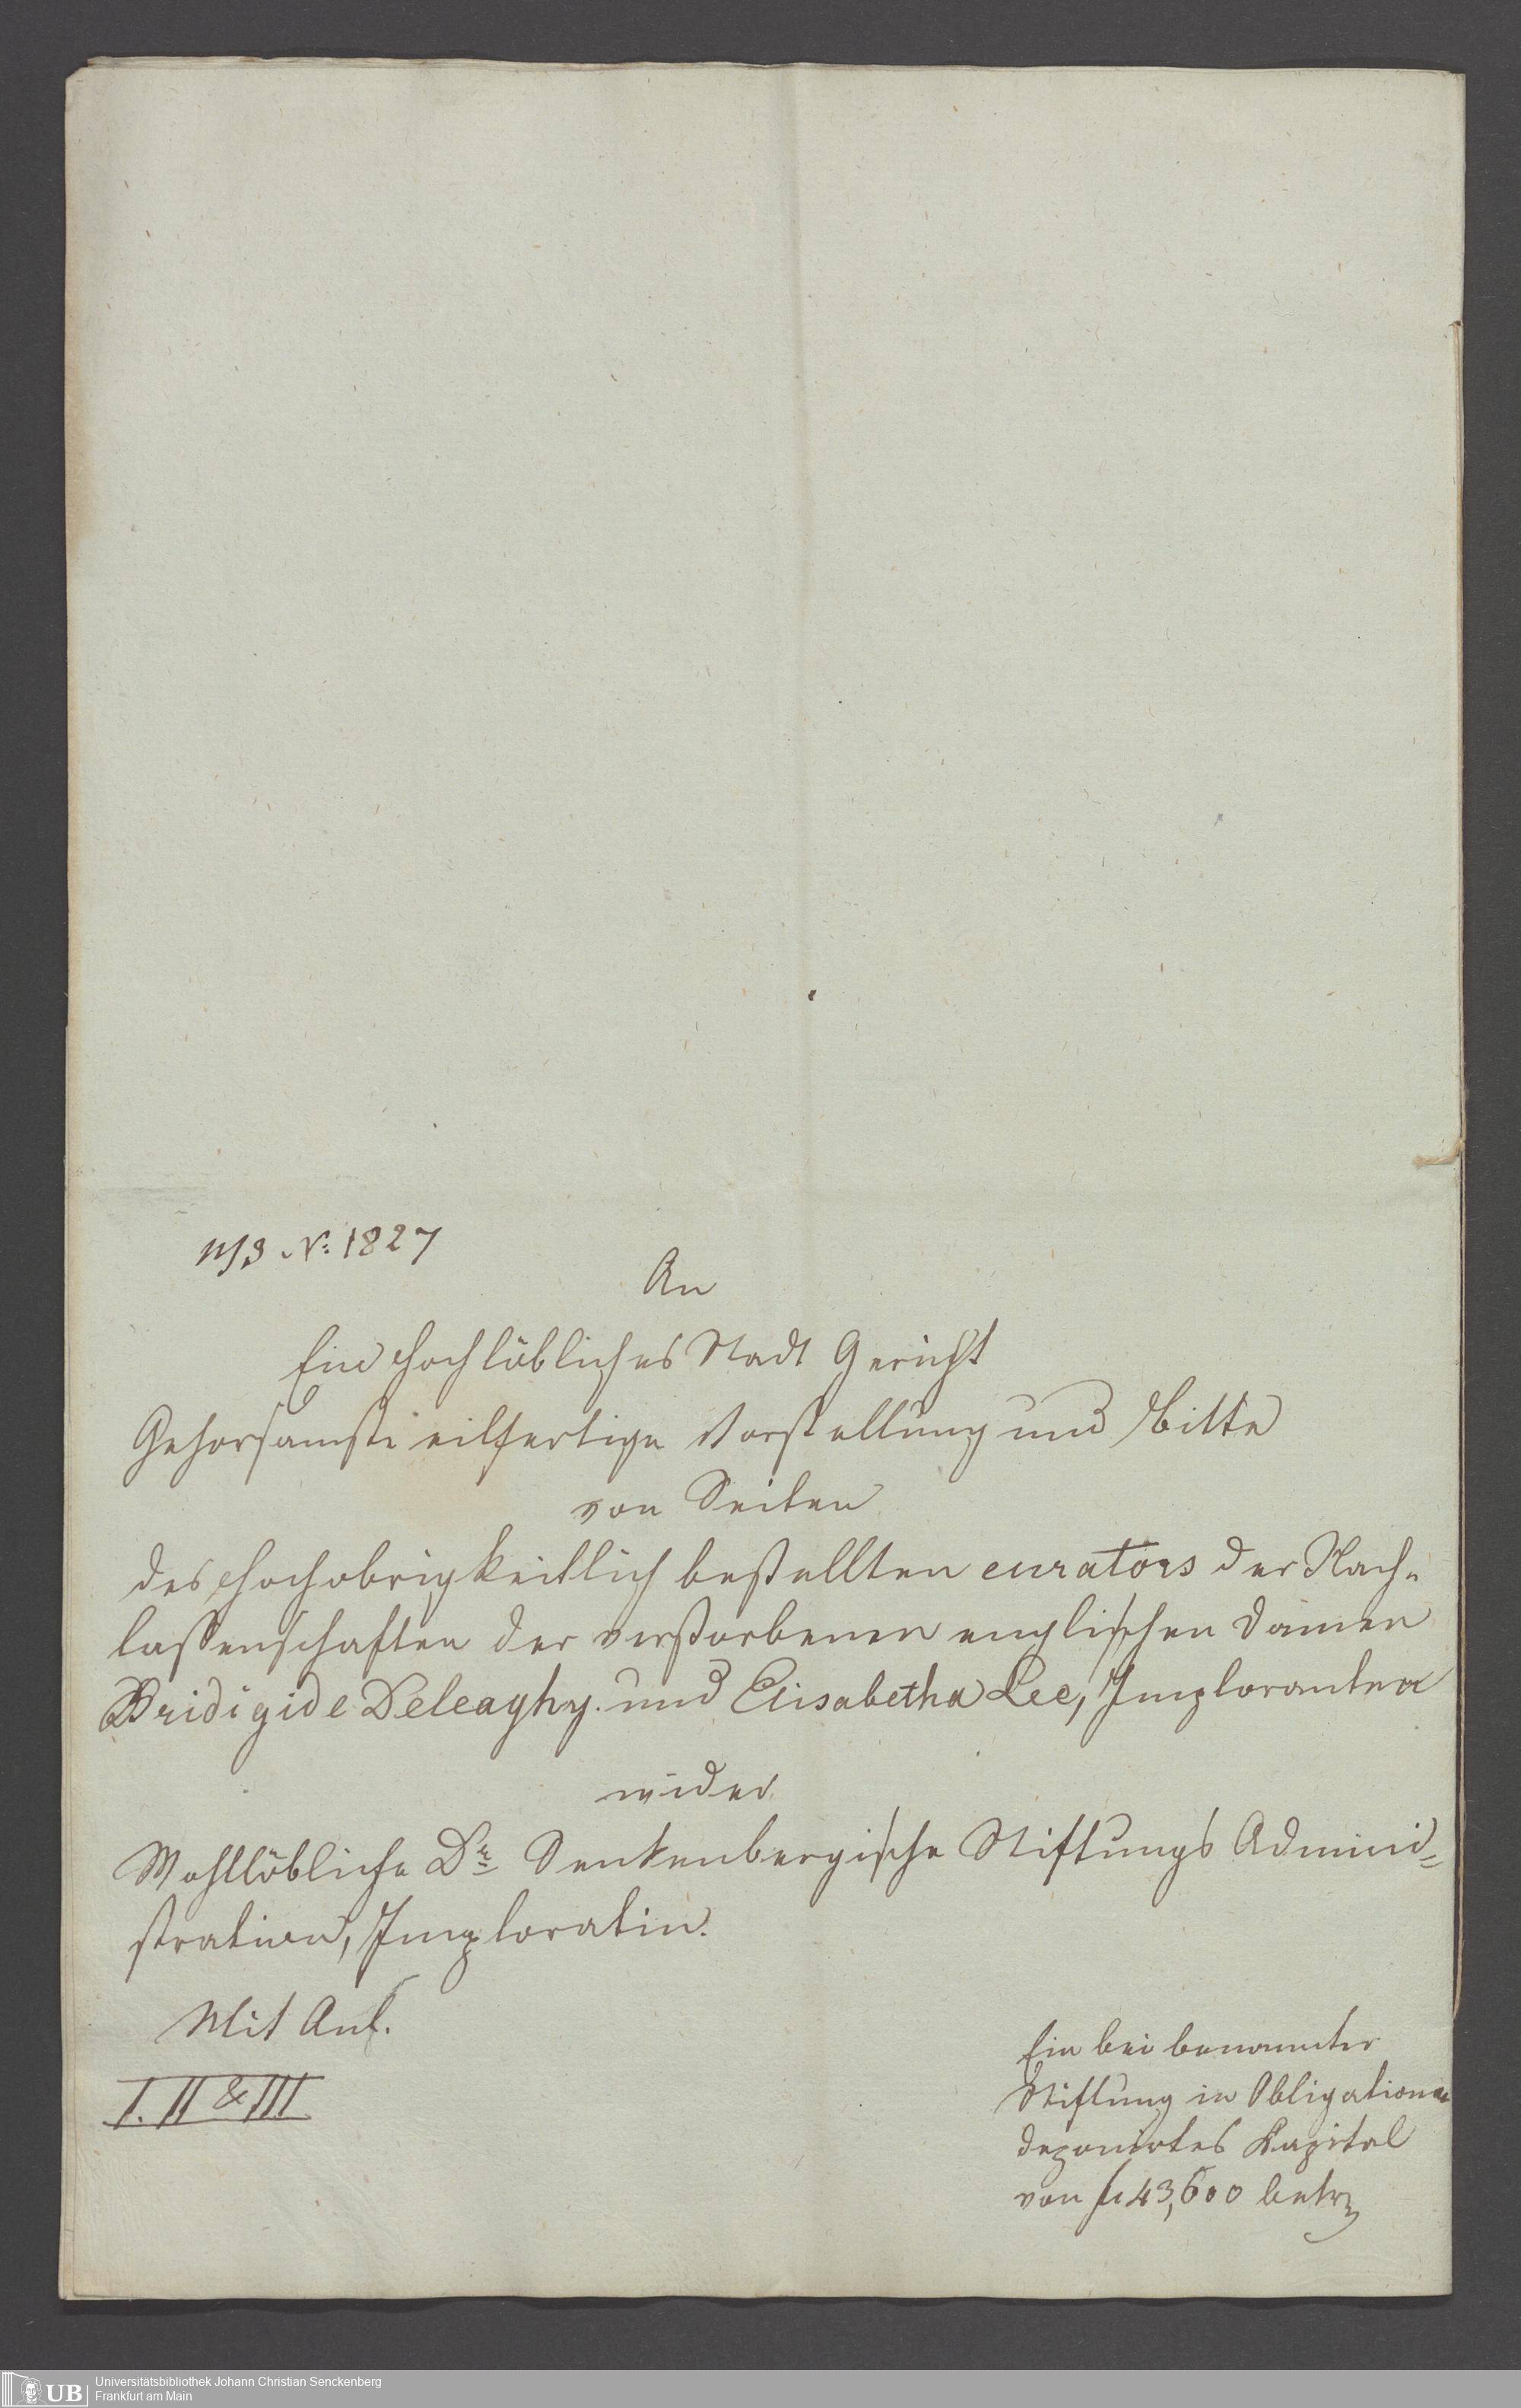 № 1827
An
Ein Hochlöbliches Stadt Gericht
Gehorsamste eilfertige Vorstellung und Bitte
von Seiten
des Hochobrigkeitlich bestellten curators der Nach-
lassenschaften der verstorbenen englischen Damen
Bridigide Deleaghy. und Elisabetha Lee, Imploranten
wider
Wohllöbliche Dr. Senkenbergische Stiftungs Admini=
stration, Imploratin.
Mit Anl.
I. II & III
Ein bei benannter
Stiftung in Obligationen
deponirtes Kapital
von fl 43,600 betr
UB Universitätsbibliothek Johann Christian Senckenberg
Frankfurt am Main